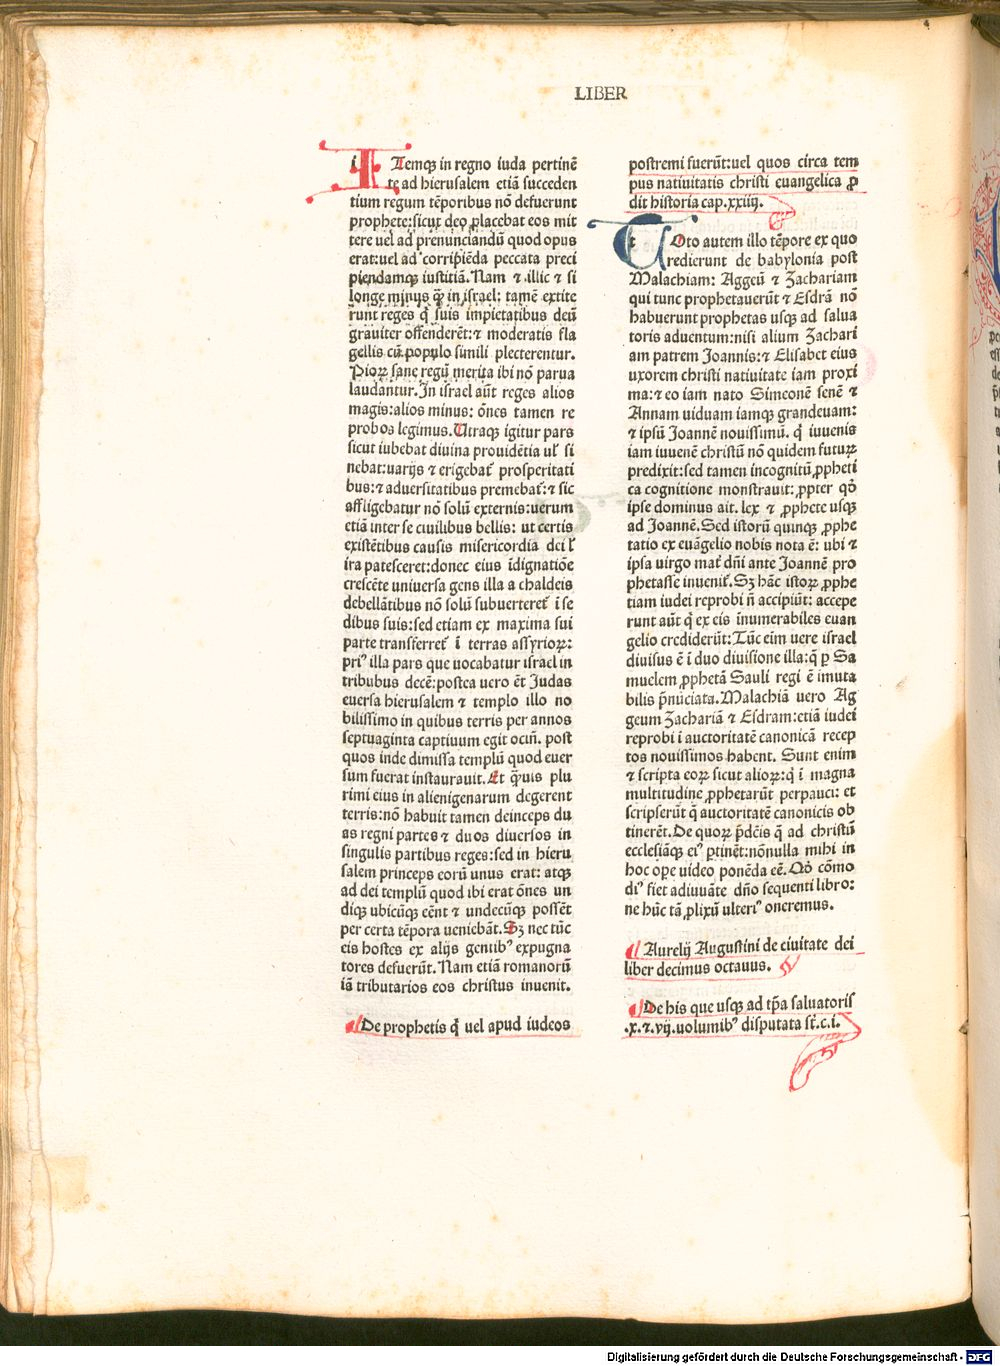 LIBER
iITemqꝫ in regno iuda pertinē
te ad hierusalem etiā succeden
tium regum tēporibus nō defuerunt
prophete: sicut deo ꝓlacebat eos mit
tere uel ad prenunciandū quod opus
erat: uel ad corripiēda peccata preci
piendamqꝫ iustitiā. Nam ⁊ illic ⁊ si
longe minus q̄ in israel: tamē extite
runt reges q̄ suis impietatibus deū
grauiter offenderēt: ⁊ moderatis fla
gellis cū populo simili plecterentur.
Pioꝝ sane regū merita ibi nō parua
laudantur. In israel aūt reges alios
magis: alios minus: ōnes tamen re
probos legimus. Utraqꝫ igitur pars
sicut iubebat diuina prouidētia ul' si
nebat: uarijs ⁊ erigebat᷑ prosperitati
bus: ⁊ aduersitatibus premebat᷑: ⁊ sic
affligebatur nō solū externis: uerum
etiā inter se ciuilibus bellis: ut certis
existētibus causis misericordia dei l'
ira patesceret: donec eius īdignatiōe
crescēte uniuersa gens illa a chaldeis
debellātibus nō solū subuerteret᷑ ī se
dibus suis: sed etiam ex maxima sui
parte transferret᷑ ī terras assyrioꝝ:
priꝰ illa pars que uocabatur israel in
tribubus decē: postea uero ēt Judas
euersa hierusalem ⁊ templo illo no
bilissimo in quibus terris per annos
septuaginta captiuum egit ociū. post
quos inde dimissa templū quod euer
sum fuerat instaurauit. Et q̄uis plu
rimi eius in alienigenarum degerent
terris: nō habuit tamen deinceps du
as regni partes ⁊ duos diuersos in
singulis partibus reges: sed in hieru
salem princeps eorū unus erat: atqꝫ
ad dei templū quod ibi erat ōnes un
diqꝫ ubicūqꝫ eēnt ⁊ undecūqꝫ possēt
per certa tēpora ueniebāt. Sꝫ nec tūc
eis hostes ex alijs gentibꝰ expugna
tores defuerūt. Nam etiā romanorū
iā tributarios eos christus inuenit.
De prophetis q̄ uel apud iudeos
postremi fuerūt: uel quos circa tem
pus natiuitatis christi euangelica ꝓ
dit historia cap. xxiiij.
tTOto autem illo tēpore ex quo
redierunt de babylonia post
Malachiam: Aggeū ⁊ Zachariam
qui tunc prophetauerūt ⁊ Esdrā nō
habuerunt prophetas usqꝫ ad salua
toris aduentum: nisi alium Zachari
am patrem Joannis: ⁊ Elisabet eius
uxorem christi natiuitate iam proxi
ma: ⁊ eo iam nato Simeonē senē ⁊
Annam uiduam iamqꝫ grandeuam:
⁊ ipsū Joannē nouissimū. q̄ iuuenis
iam iuuenē christū nō quidem futuꝝ
predixit: sed tamen incognitū ꝓpheti
ca cognitione monstrauit: ꝓpter qđ
ipse dominus ait. lex ⁊ ꝓphete usqꝫ
ad Joannē. Sed istorū quinqꝫ ꝓphe
tatio ex euāgelio nobis nota ē: ubi ⁊
ipsa uirgo mat᷑ dn̄i ante Joannē pro
phetasse inuenit᷑. Sꝫ hāc istoꝝ ꝓphe
tiam iudei reprobi n̄ accipiūt: accepe
runt aūt q̄ ex eis inumerabiles euan
gelio crediderūt: Tūc eim uere israel
diuisus ē ī duo diuisione illa: q̄ ꝑ Sa
muelem ꝓphetā Sauli regi ē imuta
bilis p̄nūciata. Malachiā uero Ag
geum Zachariā ⁊ Esdram: etiā iudei
reprobi ī auctoritatē canonicā recep
tos nouissimos habent. Sunt enim
⁊ scripta eoꝝ sicut alioꝝ: q̄ ī magna
multitudine ꝓphetarūt perpauci: et
scripserūt q̄ auctoritatē canonicis ob
tinerēt. De quoꝝ p̄dc̄is q̄ ad christū
ecclesiāqꝫ eiꝰ ꝑtinēt: nōnulla mihi in
hoc oꝑe uideo ponēda eē. Qđ cōmo
diꝰ fiet adiuuāte dn̄o sequenti libro:
ne hūc tā ꝓlixū ulteriꝰ oneremus.
Aurelij Augustini de ciuitate dei
liber decimus octauus.
De his que usqꝫ ad tp̄a saluatoris
.x. ⁊. vij. uolumibꝰ disputata st̄. c. i.